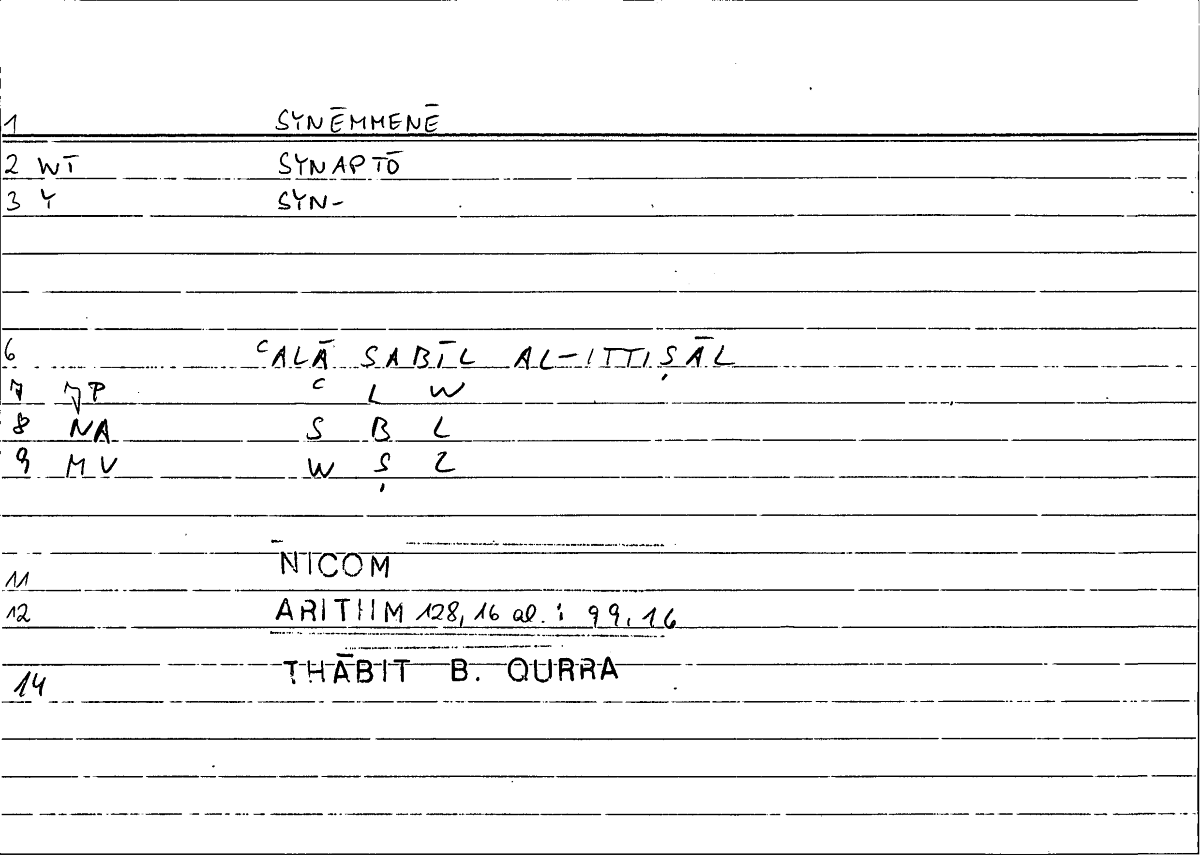 1 SYNĒMMENĒ
2 WT SYNAPTŌ
3 Y SYN-
6 ᶜALĀ SABĪL AL-ITTIṢĀL
7 JP ᶜ L W
8 NA S B L
9 MV W Ṣ L
11 NICOM
12 ARITHM 128,16 al. : 99,16
14 THĀBIT B. QURRA